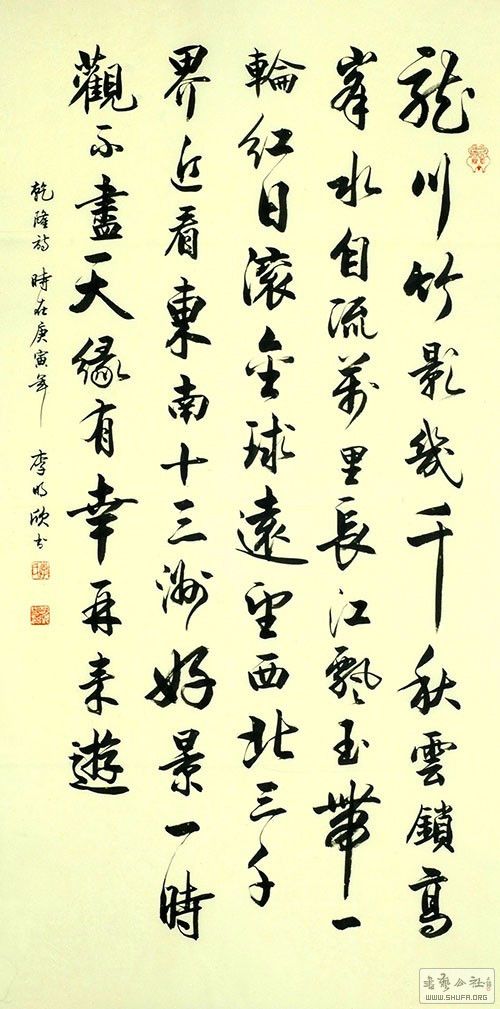 龍川竹影幾千秋雲鎖高
峯水自流萬里長江飄玉帶一
輪紅日滾金球遠望西北三千
界近看東南十三洲好景一時
觀不盡天緣有幸再來遊
乾隆詩 時在庚寅年 李明欣书
书艺公社
WWW.SHUFA.ORG